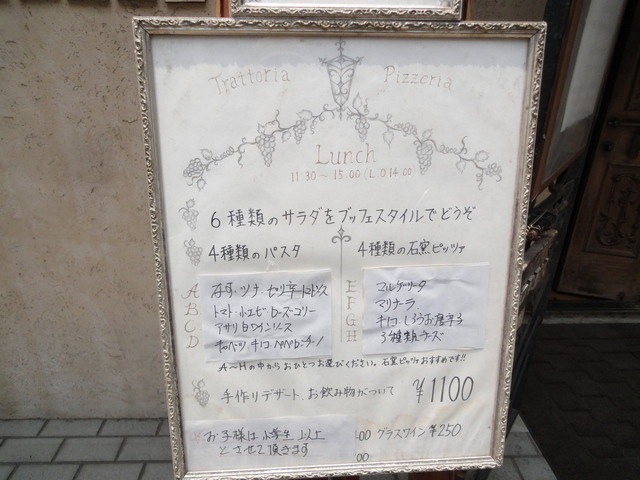 Trattoria Pizzeria
Lunch
11:30～15:00 (L.O 14:00)
6種類のサラダをブッフェスタイルでどうぞ
4種類のパスタ
A ナス・ツナ・ピリ辛トマトソース
B トマト・小エビ・ローズマリー
C アサリ白ワインソース
D キャベツ・キノコ・ペペロンチーノ
4種類の石窯ピッツァ
E マルゲリータ
F マリナーラ
G キノコ・しらうお・唐辛子
H 3種類チーズ
A～Hの中からおひとつお選びください。石窯ピッツァおすすめです!!
手作りデザート、お飲み物がついて ¥1100
お子様は小学生以上
とさせて頂きます
00 グラスワイン ¥250
00